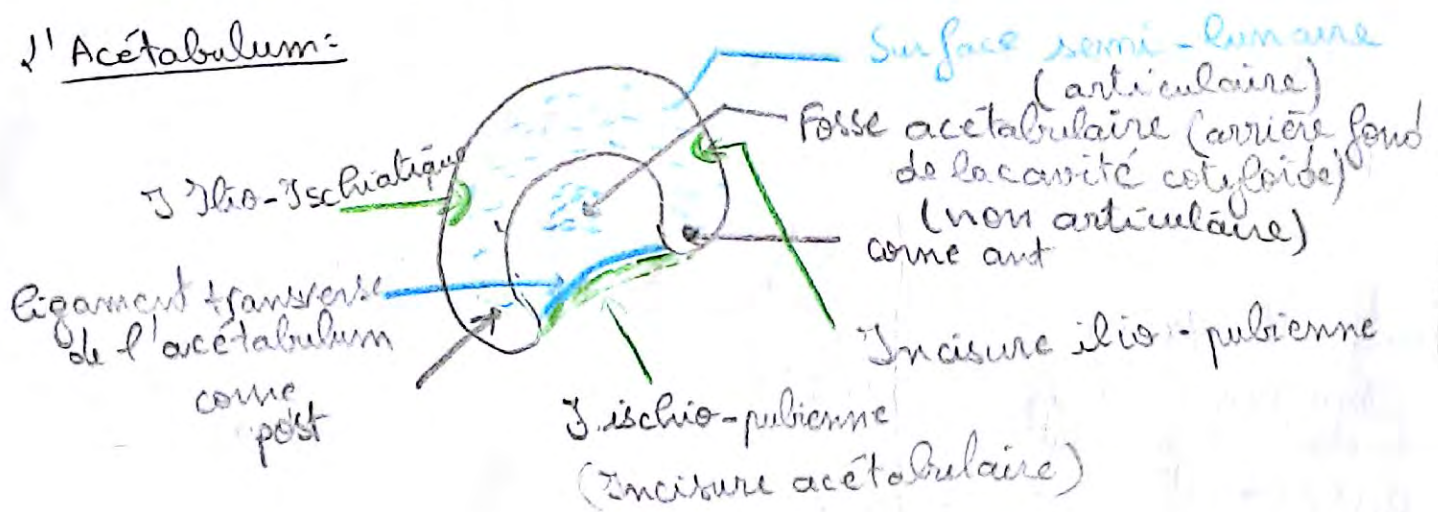 L'Acétabulum:
Surface semi-lunaire
(articulaire)
Fosse acétabulaire (arrière fond
de la cavité cotyloïde)
(non articulaire)
I Ilio-Ischiatique
corne ant
ligament transverse
de l'acétabulum
Incisure ilio-pubienne
corne
post
I. ischio-pubienne
(Incisure acétabulaire)